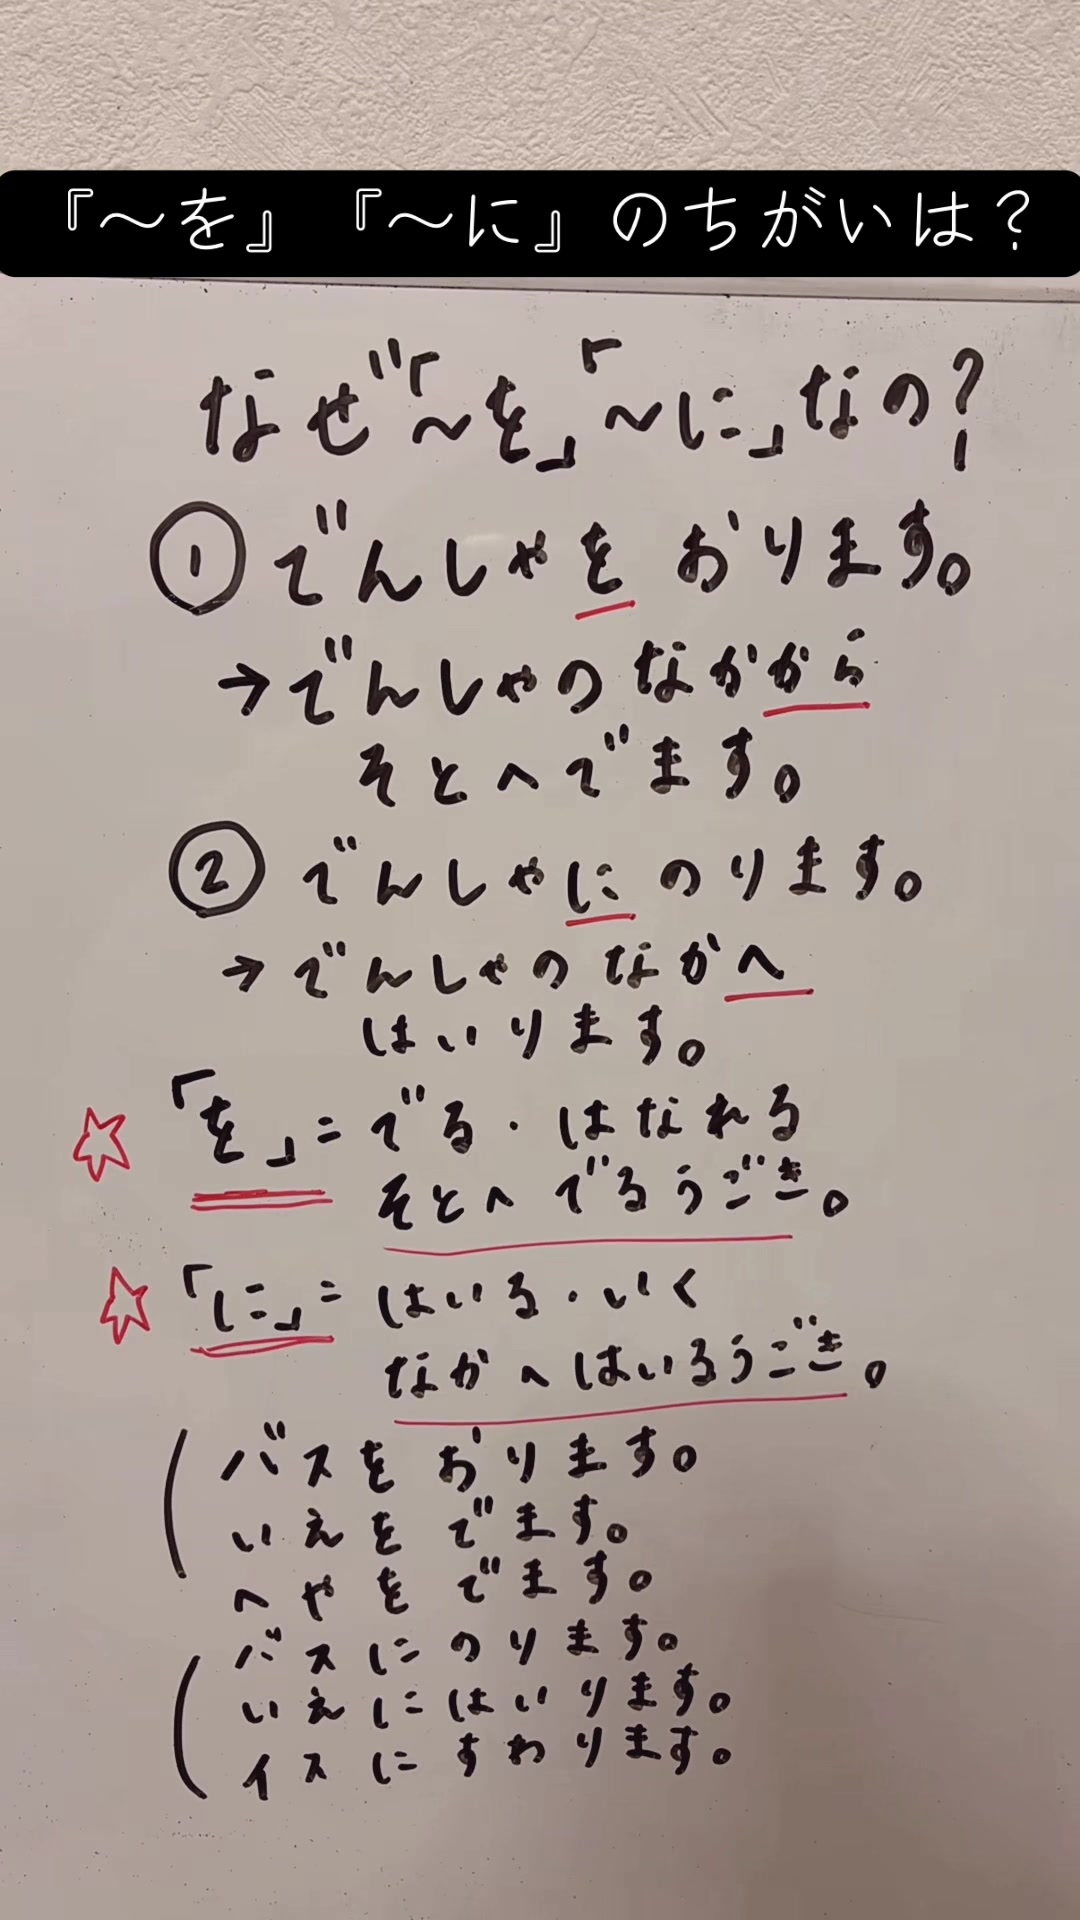 『〜を』『〜に』のちがいは？
なぜ「〜を」「〜に」なの?
① でんしゃを おります。
→でんしゃの なかから
そとへでます。
② でんしゃに のります。
→でんしゃの なかへ
はいります。
☆「を」= でる・はなれる
そとへ でるうごき。
☆「に」= はいる・いく
なかへはいるうごき。
( バスを おります。
いえを でます。
へやを でます。
( バスに のります。
いえに はいります。
イスに すわります。